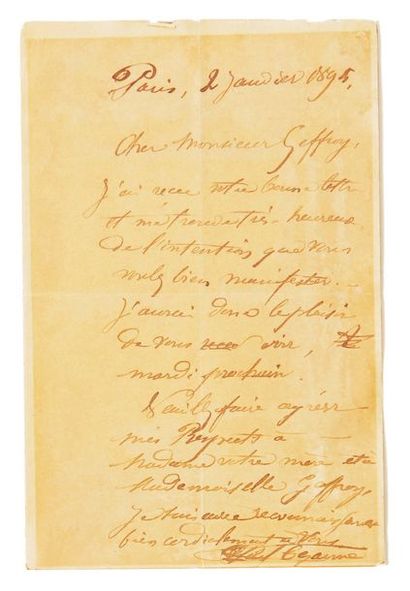 Paris, 2 Janvier 1895,
Cher Monsieur Geffroy,
J'ai recue votre bonne lettre
et me trouve très heureux
de l'intention que vous
voulez bien manifester.
J'aurai donc le plaisir
de vous voir, le
mardi prochain.
Veuillez faire agréer
mes Respects à
Madame votre mère et à
Mademoiselle Geffroy,
Je suis avec reconnaissance
bien cordialement à Vous